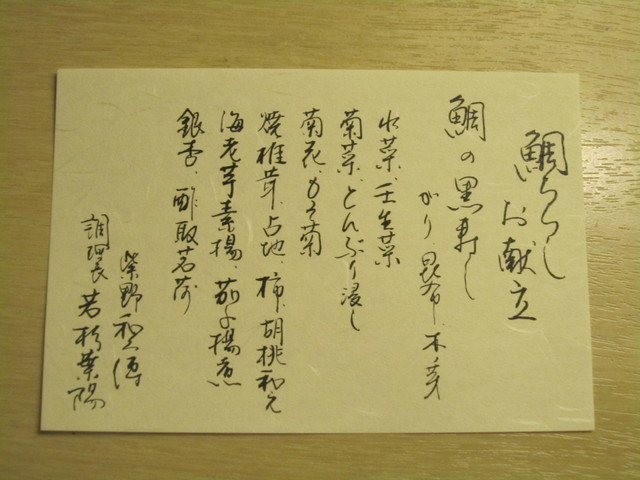 鯛ちらし
お献立
鯛の黒寿し
がり、昆布、木ノ芽
水菜、壬生菜
菊菜、とんぶり浸し
菊花、もって菊
焼椎茸、占地、柿、胡桃和え
海老芋素揚、茄子揚煮
銀杏、酢取茗荷
紫野和久傳
調理長 若杉葉陽